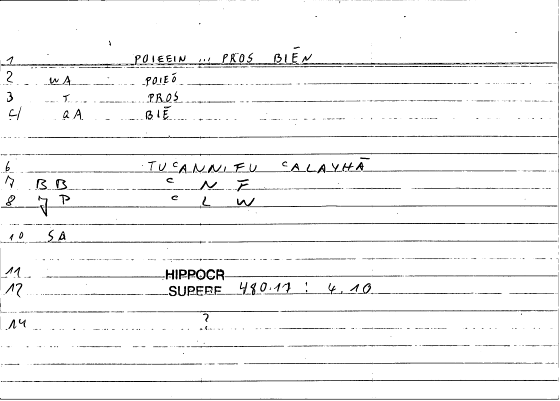 1 POIEEIN ... PROS BIĒN
2 WA POIEŌ
3 T PROS
4 QA BIĒ
6 TUᶜANNIFU ᶜALAYHĀ
7 BB ᶜ N F
8 P ᶜ L W
10 SA
11 HIPPOCR
12 SUPERF 480.17 : 4.10
14 ?